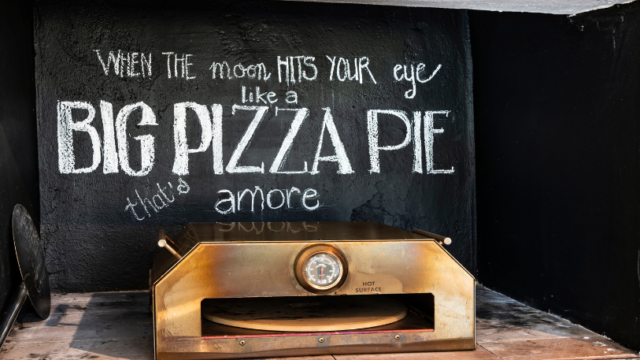 WHEN THE moon HITS YOUR eye
like a
BIG PIZZA PIE
that's amore
HOT
SURFACE